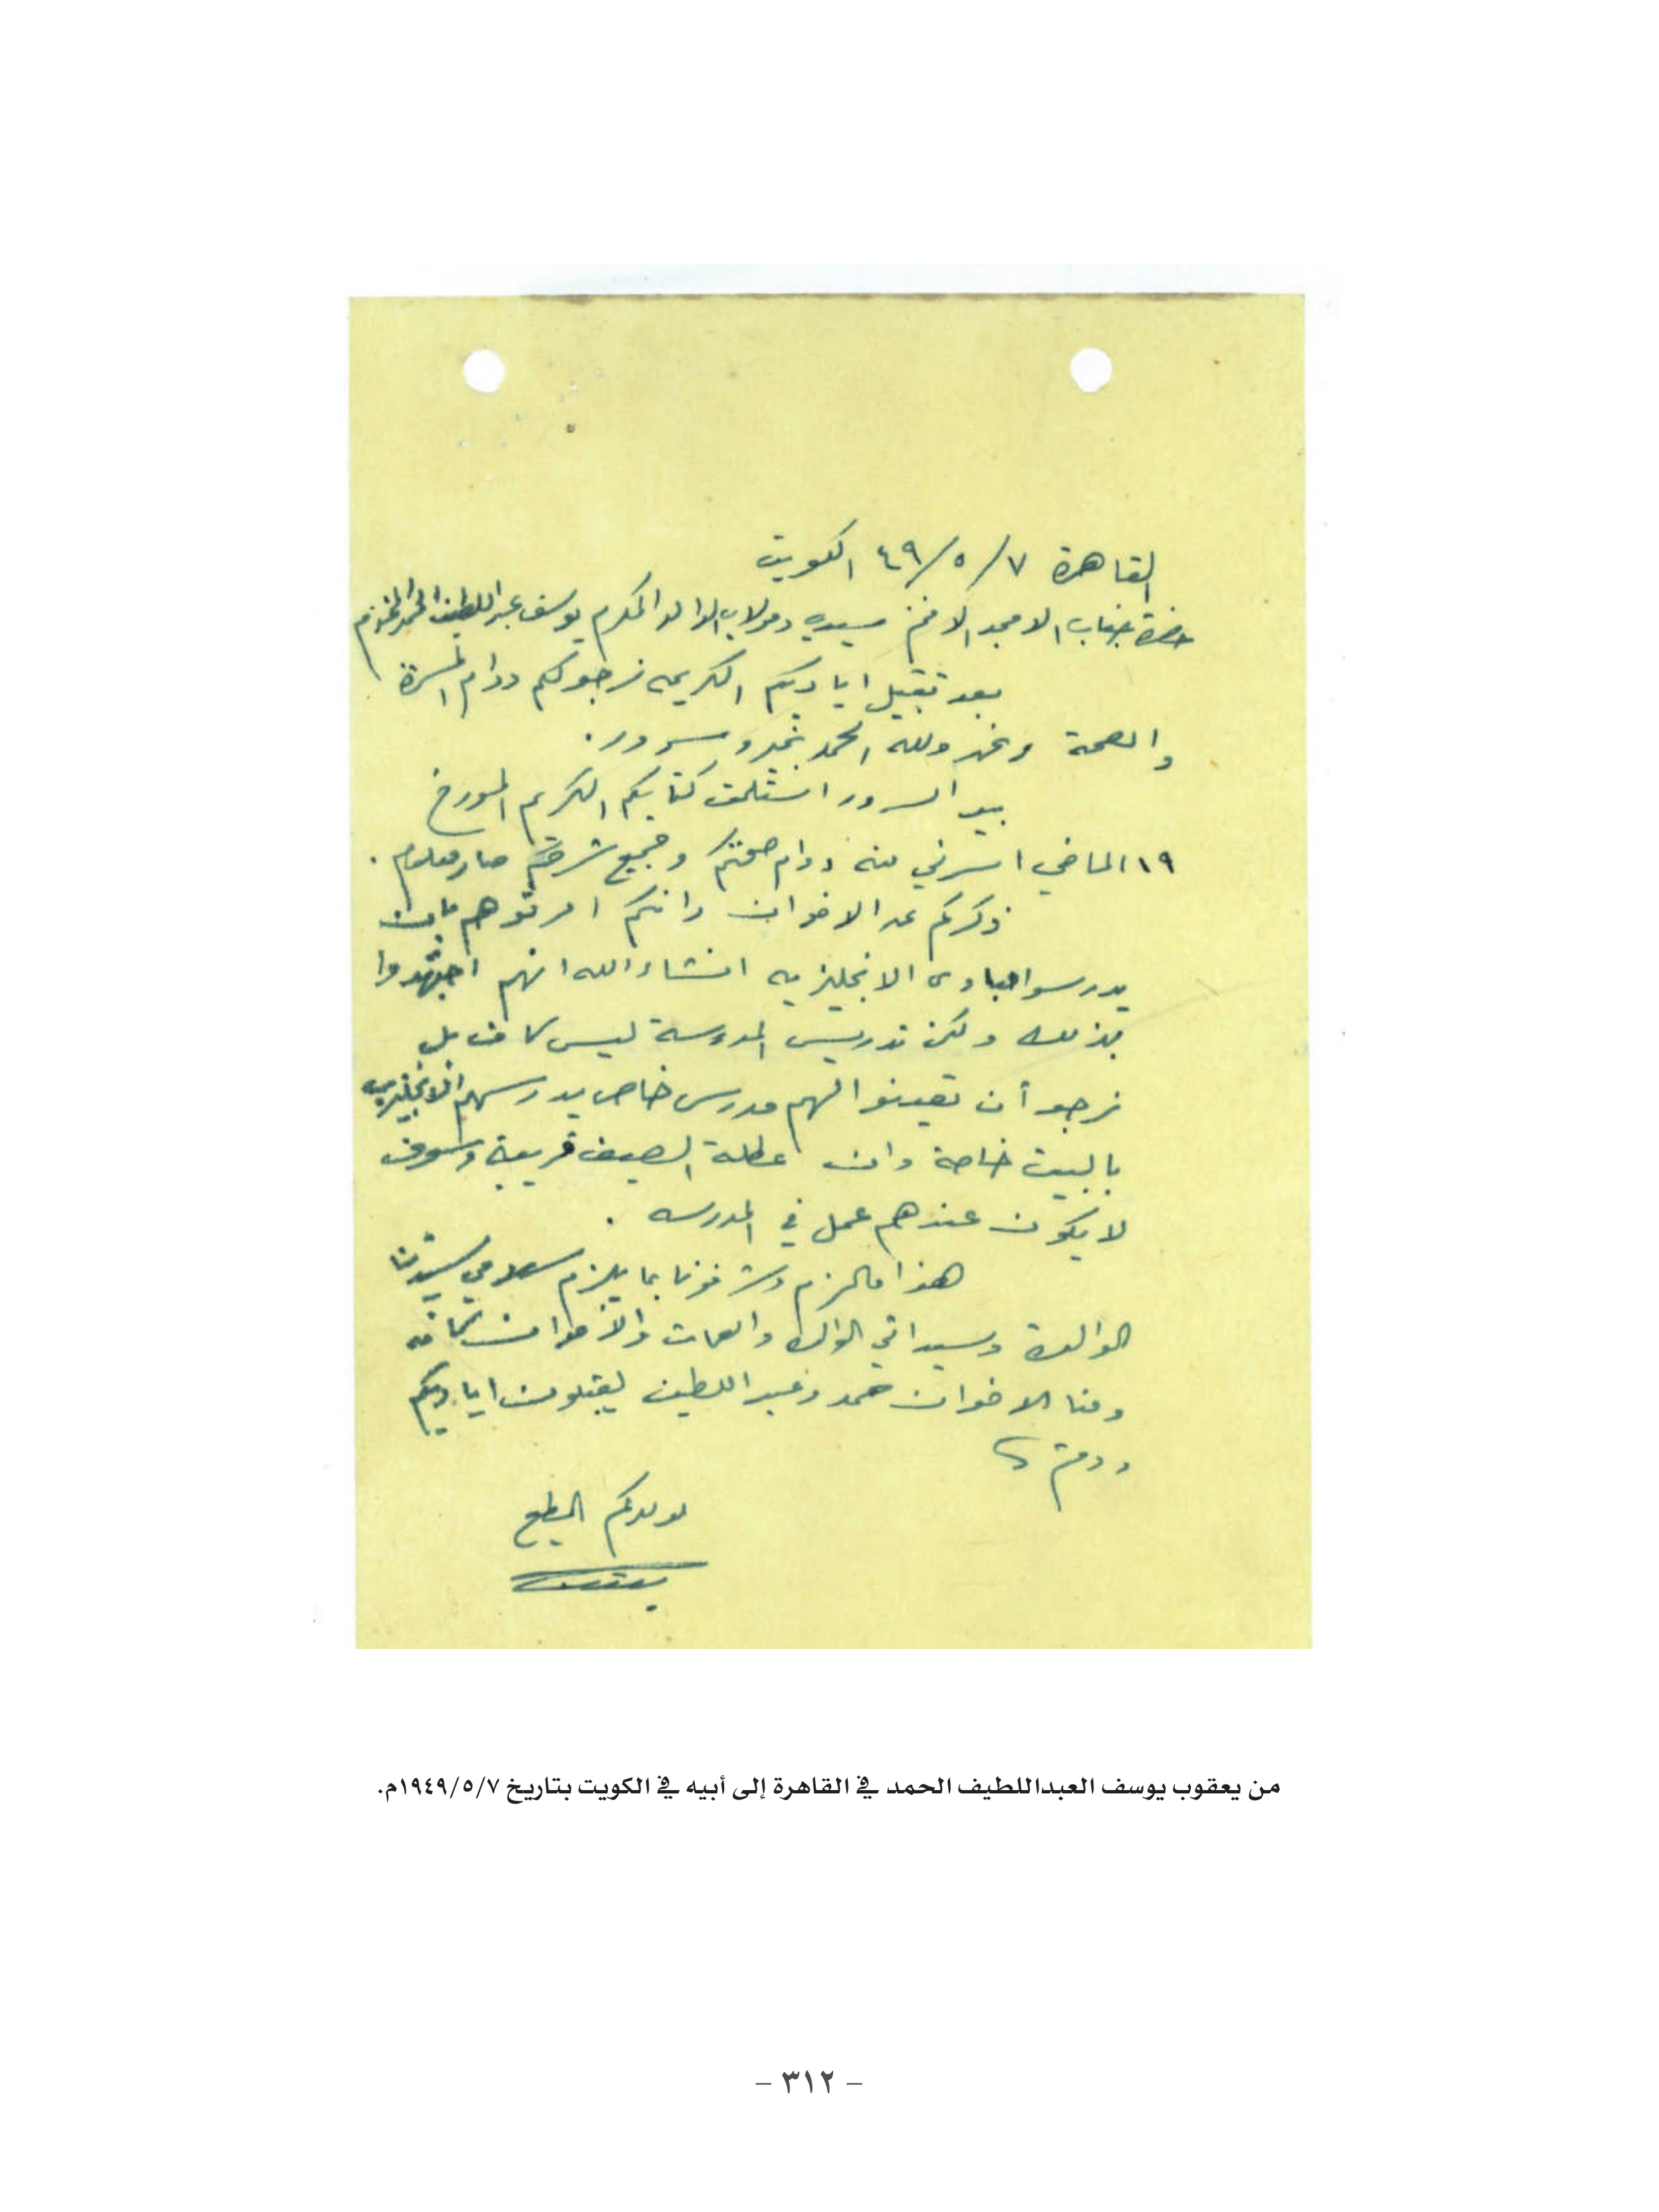 القاهرة ٧/٥/٤٩ الكويت
حضرة جناب الامجد الافخم سيدي ومولاي الوالد المكرم يوسف عبداللطيف الحمد المحترم
بعد تقبيل اياديكم الكريمه نرجو لكم دوام المسرة
والصحة ونحن ولله الحمد بخير وسرور.
بيد السرور استلمت كتابكم الكريم المورخ
١٩ الماضي اسرني منه دوام صحتكم وجميع شرحكم صار معلوم.
ذكركم عن الاخوان وانكم امرتوهم بان
يدرسوا مبادى الانجليزيه انشاء الله انهم اجتهدوا
بذلك ولكن تدريس المدرسة ليس كاف بل
نرجو أن تعينوا لهم مدرس خاص يدرسهم الانجليزي
بالبيت خاصة وان عطلة الصيف قريبة وسوف
لا يكون عندهم عمل في المدرسه.
هذا مالزم وشرفونا بما يلزم سلامي سيدتنا
الوالدة وسيداتي والعمات والأخوان كافه
ومنا الاخوان حمد وعبداللطيف يقبلون اياديكم
ودمتم
لولدكم المطيع
يعقوب
من يعقوب يوسف العبداللطيف الحمد في القاهرة إلى أبيه في الكويت بتاريخ ١٩٤٩/٥/٧م.
– ٣١٢ –